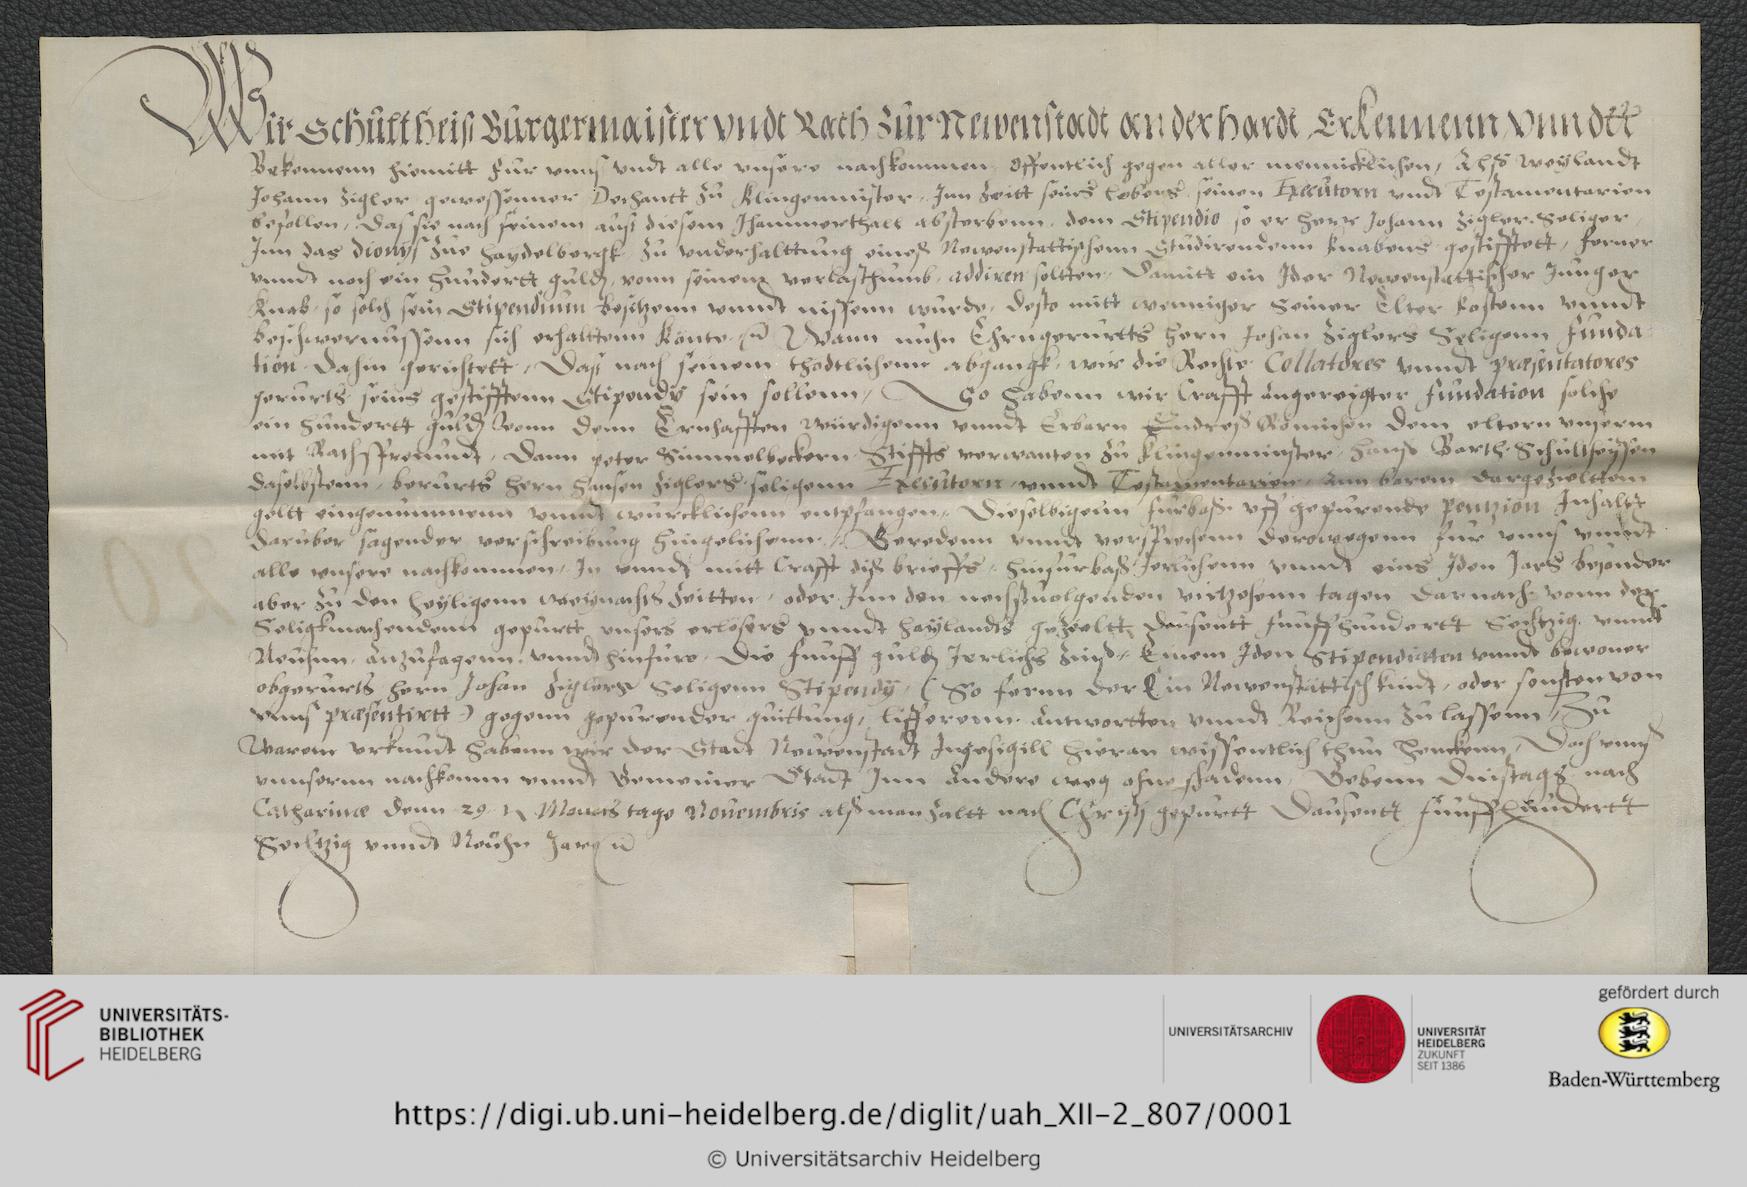 Wir Schultheis Burgermaister vndt Rath Zur Newenstadt an der hardt Erkennenn vnndtt
Bekennenn hiemitt Fur vnns vndt alle vnsere nachkommen offentlich gegen aller mennicklichen, Alß weylandt
Johann Zigler gewessenner Dechantt Zu Klingenmister, Inn Zeitt seins Lebens seinen Executorn vndt Testamentarien
befollen, Das sie nach seinem auß diesem Jhammerthall absterbenn, dem Stipendio so er herr Johann Zigler Seliger,
Inn das Dionys Zue Haydelbergk, Zu vnderhalttung eines Newenstattischenn Studirendenn Knabens gestifftett, ferner
vnndt noch ein hundertt guld, vonn seinem verlasthumb, addiren soltten, Damitt ein Jder Newenstattischer Junger
Knab, so solch sein Stipendium besitzenn vnndt niessenn wurde, desto mitt wenniger Seiner Elter Kostenn vnndt
beschwernussenn sich erhalttenn Könte, Wann nuhn Ehrngerurtts hern Johan Ziglers Seligenn Funda
tion Dahin gerichtett, Das nach seinem thödtlichenn abgangk, wir die Rechte Collatores vnndt præsentatores
gerurts seins gestifftenn Stipendÿ sein sollenn, So habenn wir Crafft angereigter Fundation solche
ein hundertt guld Vonn denn Ernhafften würdigenn vnndt Erbarn Endreß Römichen Dem eltern vnserm
mit Rathsfreundt, Dann peter Simmelbeckern Stiffts verwanten Zu Klingenmünster, hanß Barth Schultheyssen
daselbstenn, berurts hern hansen Ziglers seligenn Executorn, vnndt Testamentarien, Ann barem dargezeltem
geltt eingenummenn vnndt würcklichenn entpfangen, Dieselbigenn furbaß vff gepurende pentzion Inhaltt
daruber sagender verschreibung hingelichenn, Geredenn vnndt versprechenn derowegenn fur vnns vnndt
alle vnsere nachkommen, In vnndt mitt Crafft diß brieffs, hinfurbaß Jerlichenn vnndt eins Jden Jars besonder
aber Zu den heyligenn weynachts Zeitten, oder Inn den nechstuolgenden virtzehenn tagen darnach, vonn der
Seligkmachendenn gepurtt vnsers erlösers vnndt haylandts gezeeltt Dausentt funffhundertt Sechtzig vnndt
Neuhnn, Anzufagenn vnndt hinfuro, die funff guld Jerlichs Zinß, Einem Jden Stipendiaten vnndt bewoner
obgerurts hern Johan Ziglers Seligenn Stipendÿ, (So fernn der Ein Newenstättisch kindt, oder sonsten von
vnns præsentirtt) gegenn gepurender quittung, liffferenn, Antwortten vnndt Reichenn Zu lassenn, Zu
Warem vrkundt habenn wir der Stadt Neuwenstadt Ingesigill hieran wissentlich thun henckenn, Doch vnns
vnnsernn nachkomm vnndt Gemeiner Stadt Inn Andere weg ohne schadenn, Gebenn Dinstags nach
Catharinæ denn 29 Monats tage Nouembris alß man Zaltt nach Christi gepurtt Dausentt funffhundertt
Sechtzig vnndt Neuhn Jare
20
UNIVERSITÄTS-
BIBLIOTHEK
HEIDELBERG
UNIVERSITÄTSARCHIV
UNIVERSITÄT
HEIDELBERG
ZUKUNFT
SEIT 1386
gefördert durch
Baden-Württemberg
https://digi.ub.uni-heidelberg.de/diglit/uah_XII-2_807/0001
© Universitätsarchiv Heidelberg